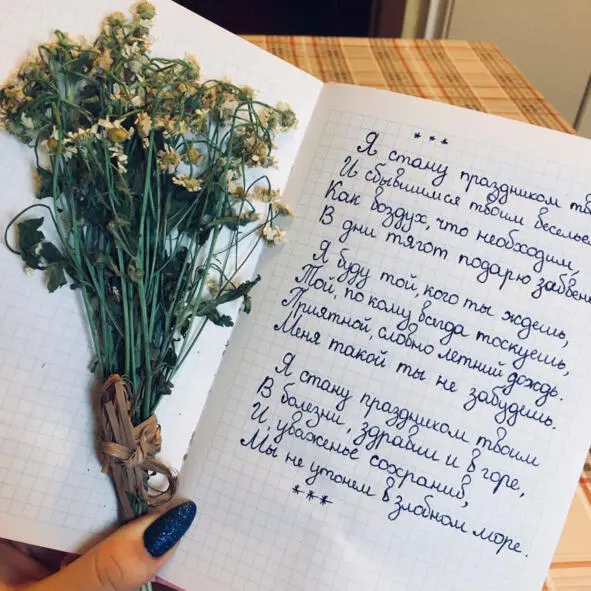 ***
Я стану праздником тв
И сбывшимся твоим весельем
Как воздух, что необходим,
В дни тягот подарю забвен
Я буду той, кого ты ждешь,
Той, по кому всегда тоскуешь,
Приятной, словно летний дождь.
Меня такой ты не забудешь.
Я стану праздником твоим
В болезни, здравии и в горе,
И, уваженье сохранив,
Мы не утонем в злобном море.
***